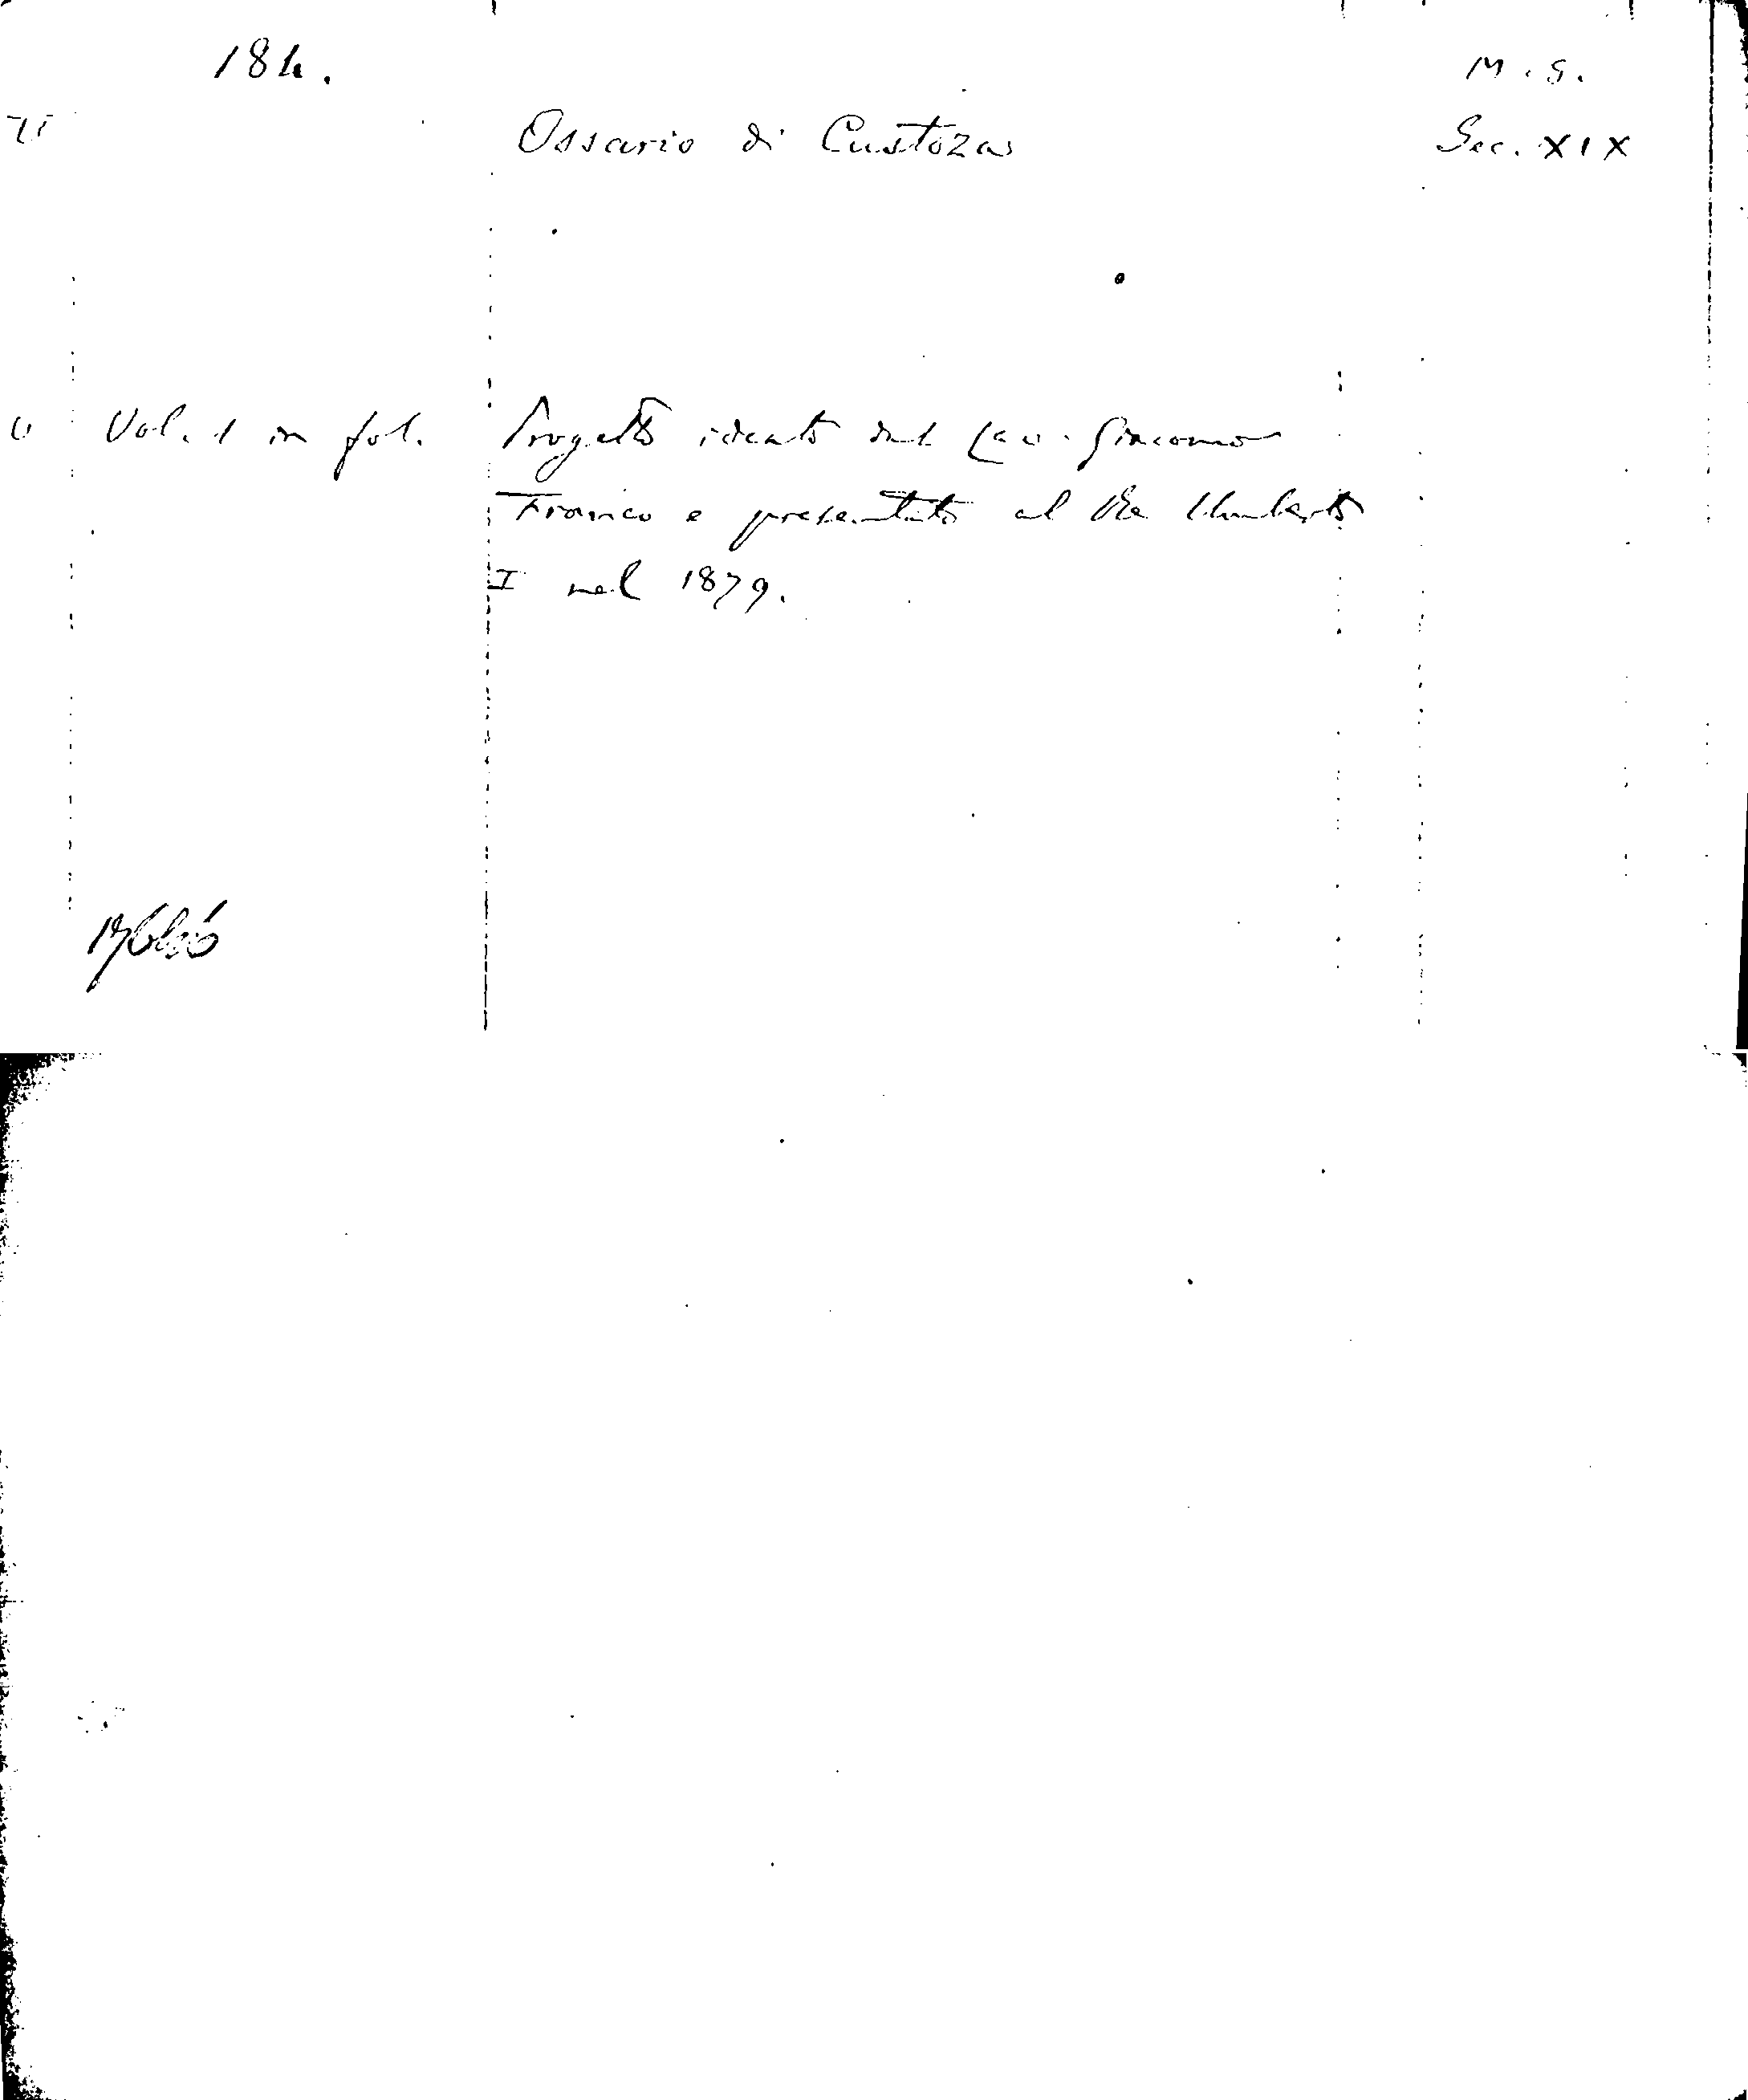 184.
M. S.
Ossario di Custoza
Sec. XIX
Vol. 1 in fol.
Progetto ideato dal Cav. Giacomo
Franco e presentato al Re Umberto
I nel 1879.